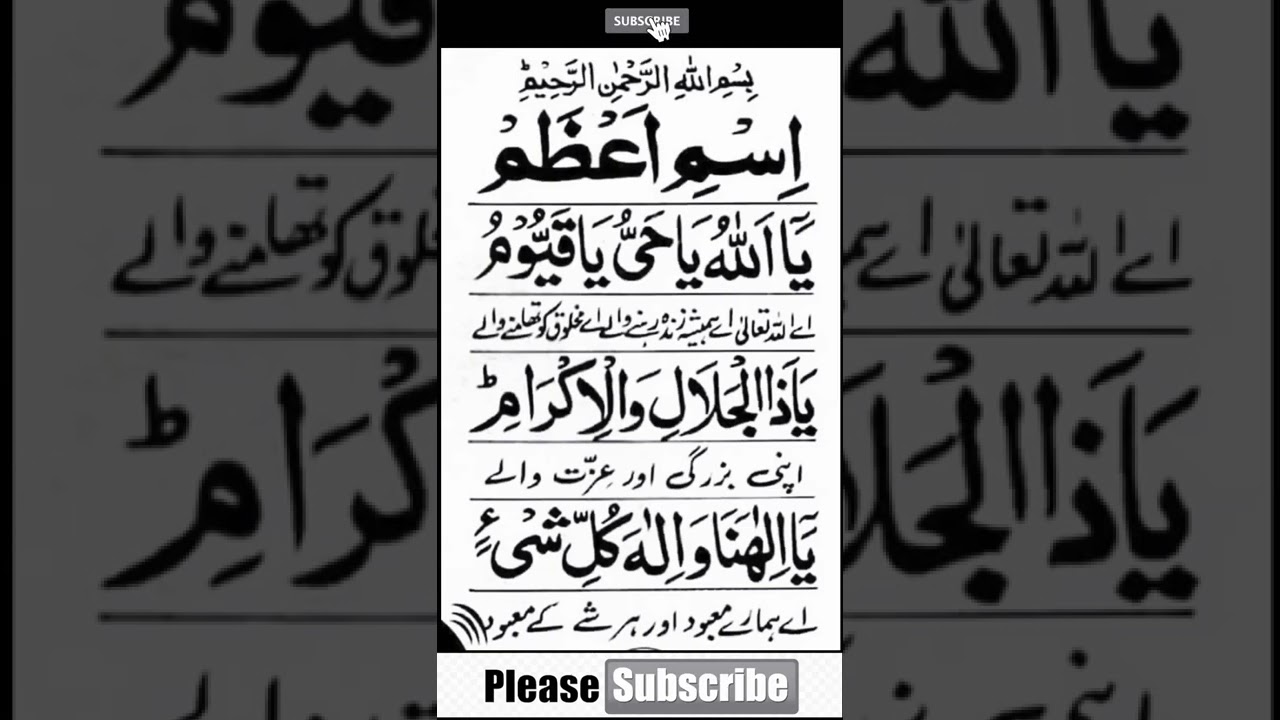 SUBSCRIBE
بِسْمِ اللّٰهِ الرَّحْمٰنِ الرَّحِيْمِؕ
اِسْمِ اَعْظَمْ
يَآ اَللّٰهُ يَا حَيُّ يَا قَيُّوْمُ
اے اللہ تعالیٰ اے ہمیشہ زندہ رہنے والے اے مخلوق کو تھامنے والے
يَا ذَا الْجَلَالِ وَالْاِكْرَامِؕ
اپنی بزرگی اور عزّت والے
يَا اِلٰهَنَا وَ اِلٰهَ كُلِّ شَیْءٍ
اے ہمارے معبود اور ہر شے کے معبود
Please Subscribe